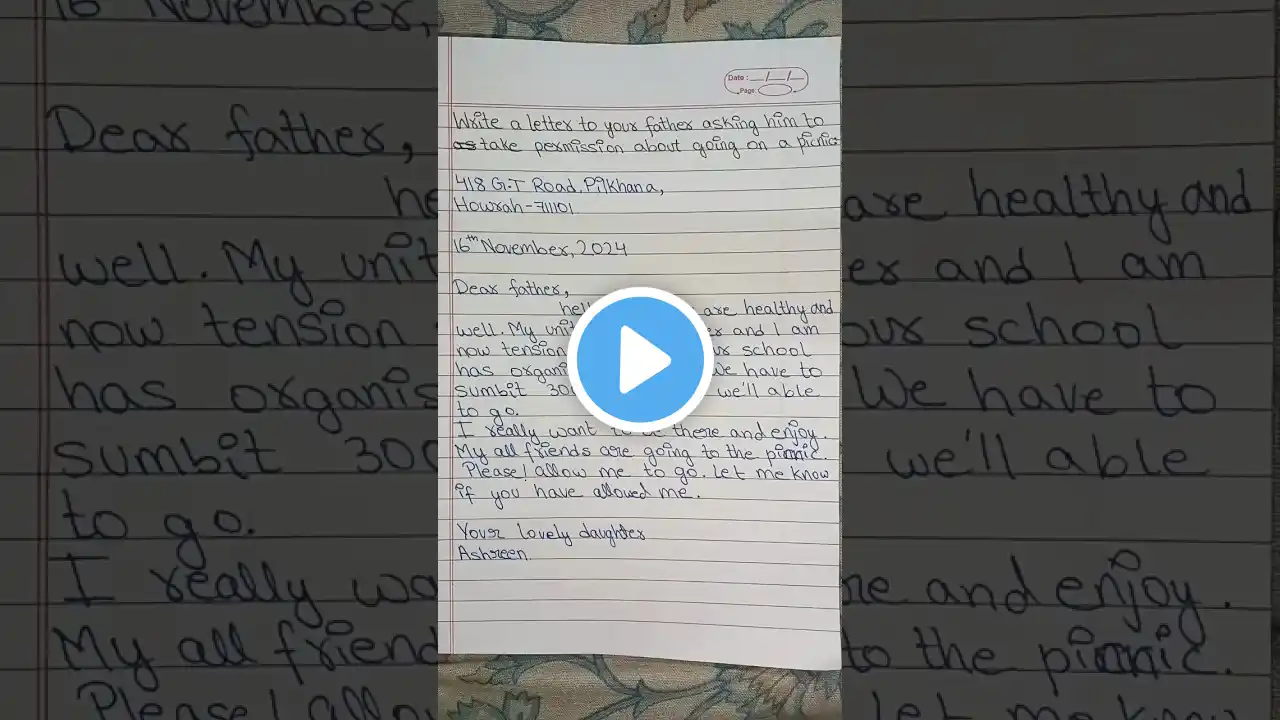 Date : __/__/__
Page:
Write a letter to your father asking him to
as take permission about going on a picnic
418 G.T Road, Pilkhana,
Howrah-71101
16th November, 2024
Dear father,
are healthy and
well. My unit er and I am
now tension school
has organi We have to
sumbit 300 we'll able
to go.
I really want there and enjoy.
My all friends are going to the picnic.
Please! allow me to go. Let me know
if you have allowed me.
Your lovely daughter
Ashreen